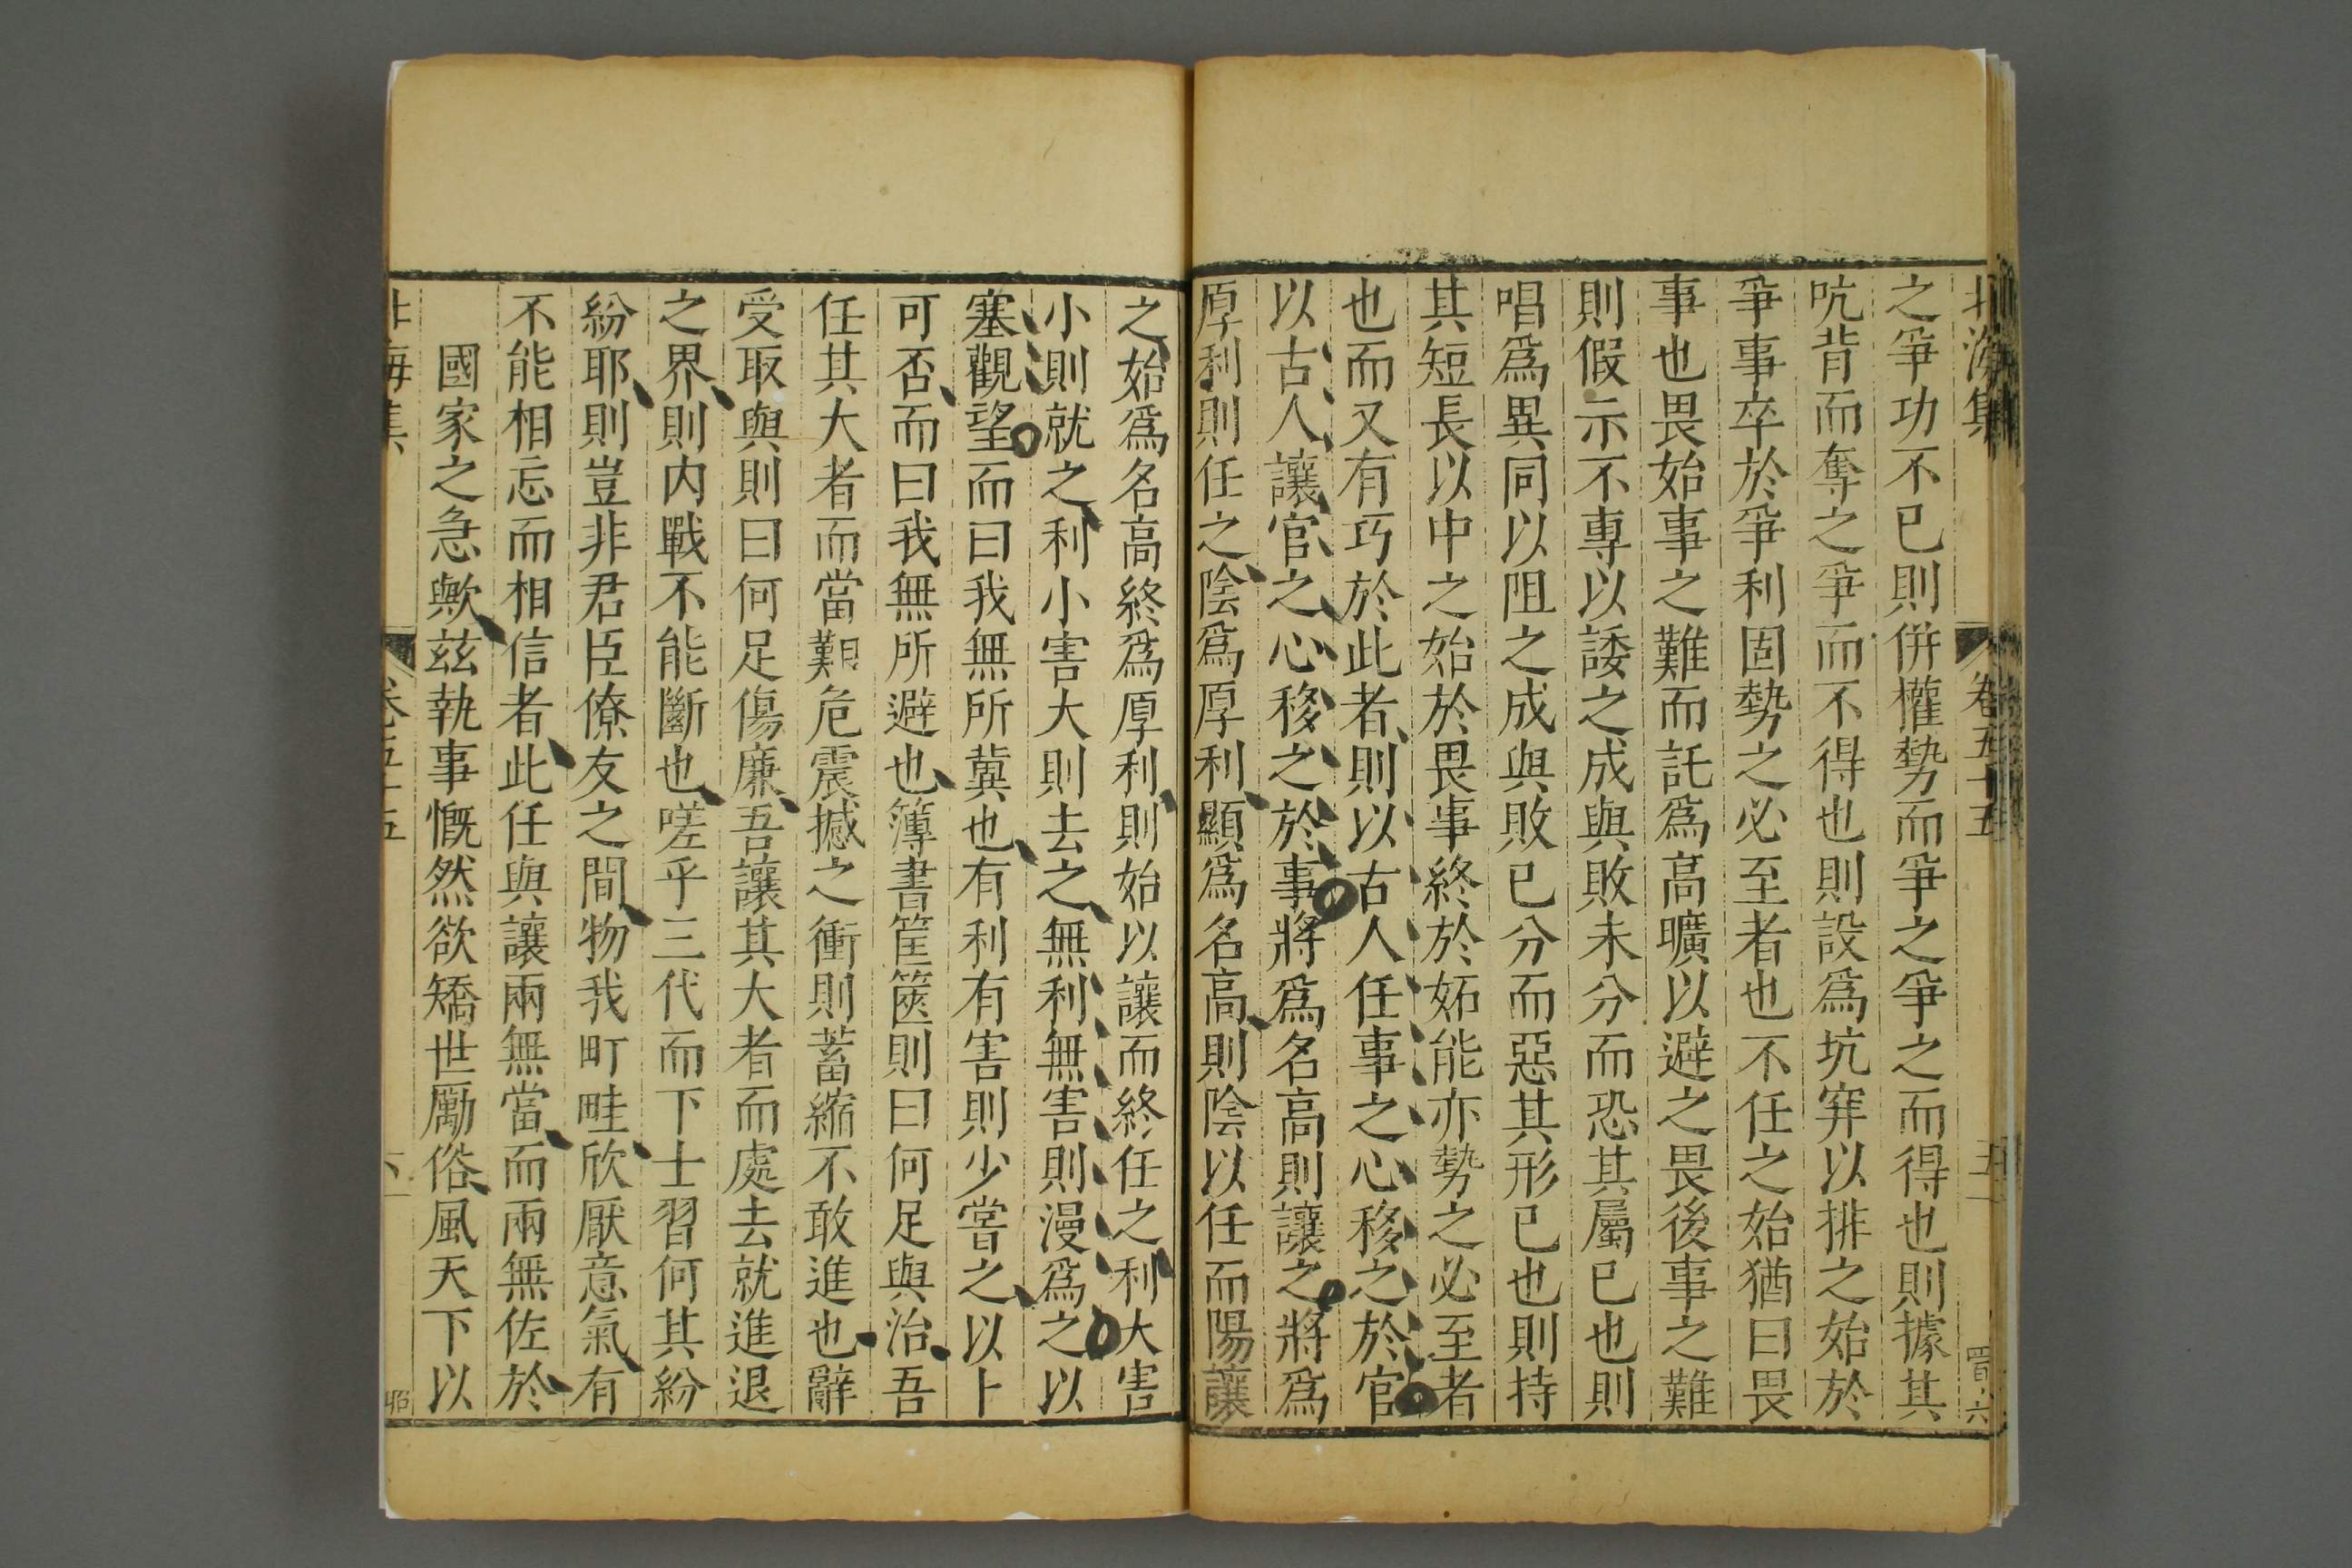 北海集 卷五十五 五
之爭功不已則併權勢而爭之爭之而得也則據其
吭背而奪之爭而不得也則設爲坑穽以排之始於
爭事卒於爭利固勢之必至者也不任之始猶曰畏
事也畏始事之難而託爲高曠以避之畏後事之難
則假示不專以諉之成與敗未分而恐其屬已也則
唱爲異同以阻之成與敗已分而惡其形已也則持
其短長以中之始於畏事終於妬能亦勢之必至者
也而又有巧於此者則以古人任事之心移之於官
以古人讓官之心移之於事將爲名高則讓之將爲
厚利則任之陰爲厚利顯爲名高則陰以任而陽讓
之始爲名高終爲厚利則始以讓而終任之利大害
小則就之利小害大則去之無利無害則漫爲之以
塞觀望而曰我無所冀也有利有害則少嘗之以卜
可否而曰我無所避也簿書筐篋則曰何足與治吾
任其大者而當艱危震撼之衝則蓄縮不敢進也辭
受取與則曰何足傷廉吾讓其大者而處去就進退
之界則内戰不能斷也嗟乎三代而下士習何其紛
紛耶則豈非君臣僚友之間物我町畦欣厭意氣有
不能相忘而相信者此任與讓兩無當而兩無佐於
國家之急歟茲執事慨然欲矯世勵俗風天下以
北海集 卷五十五